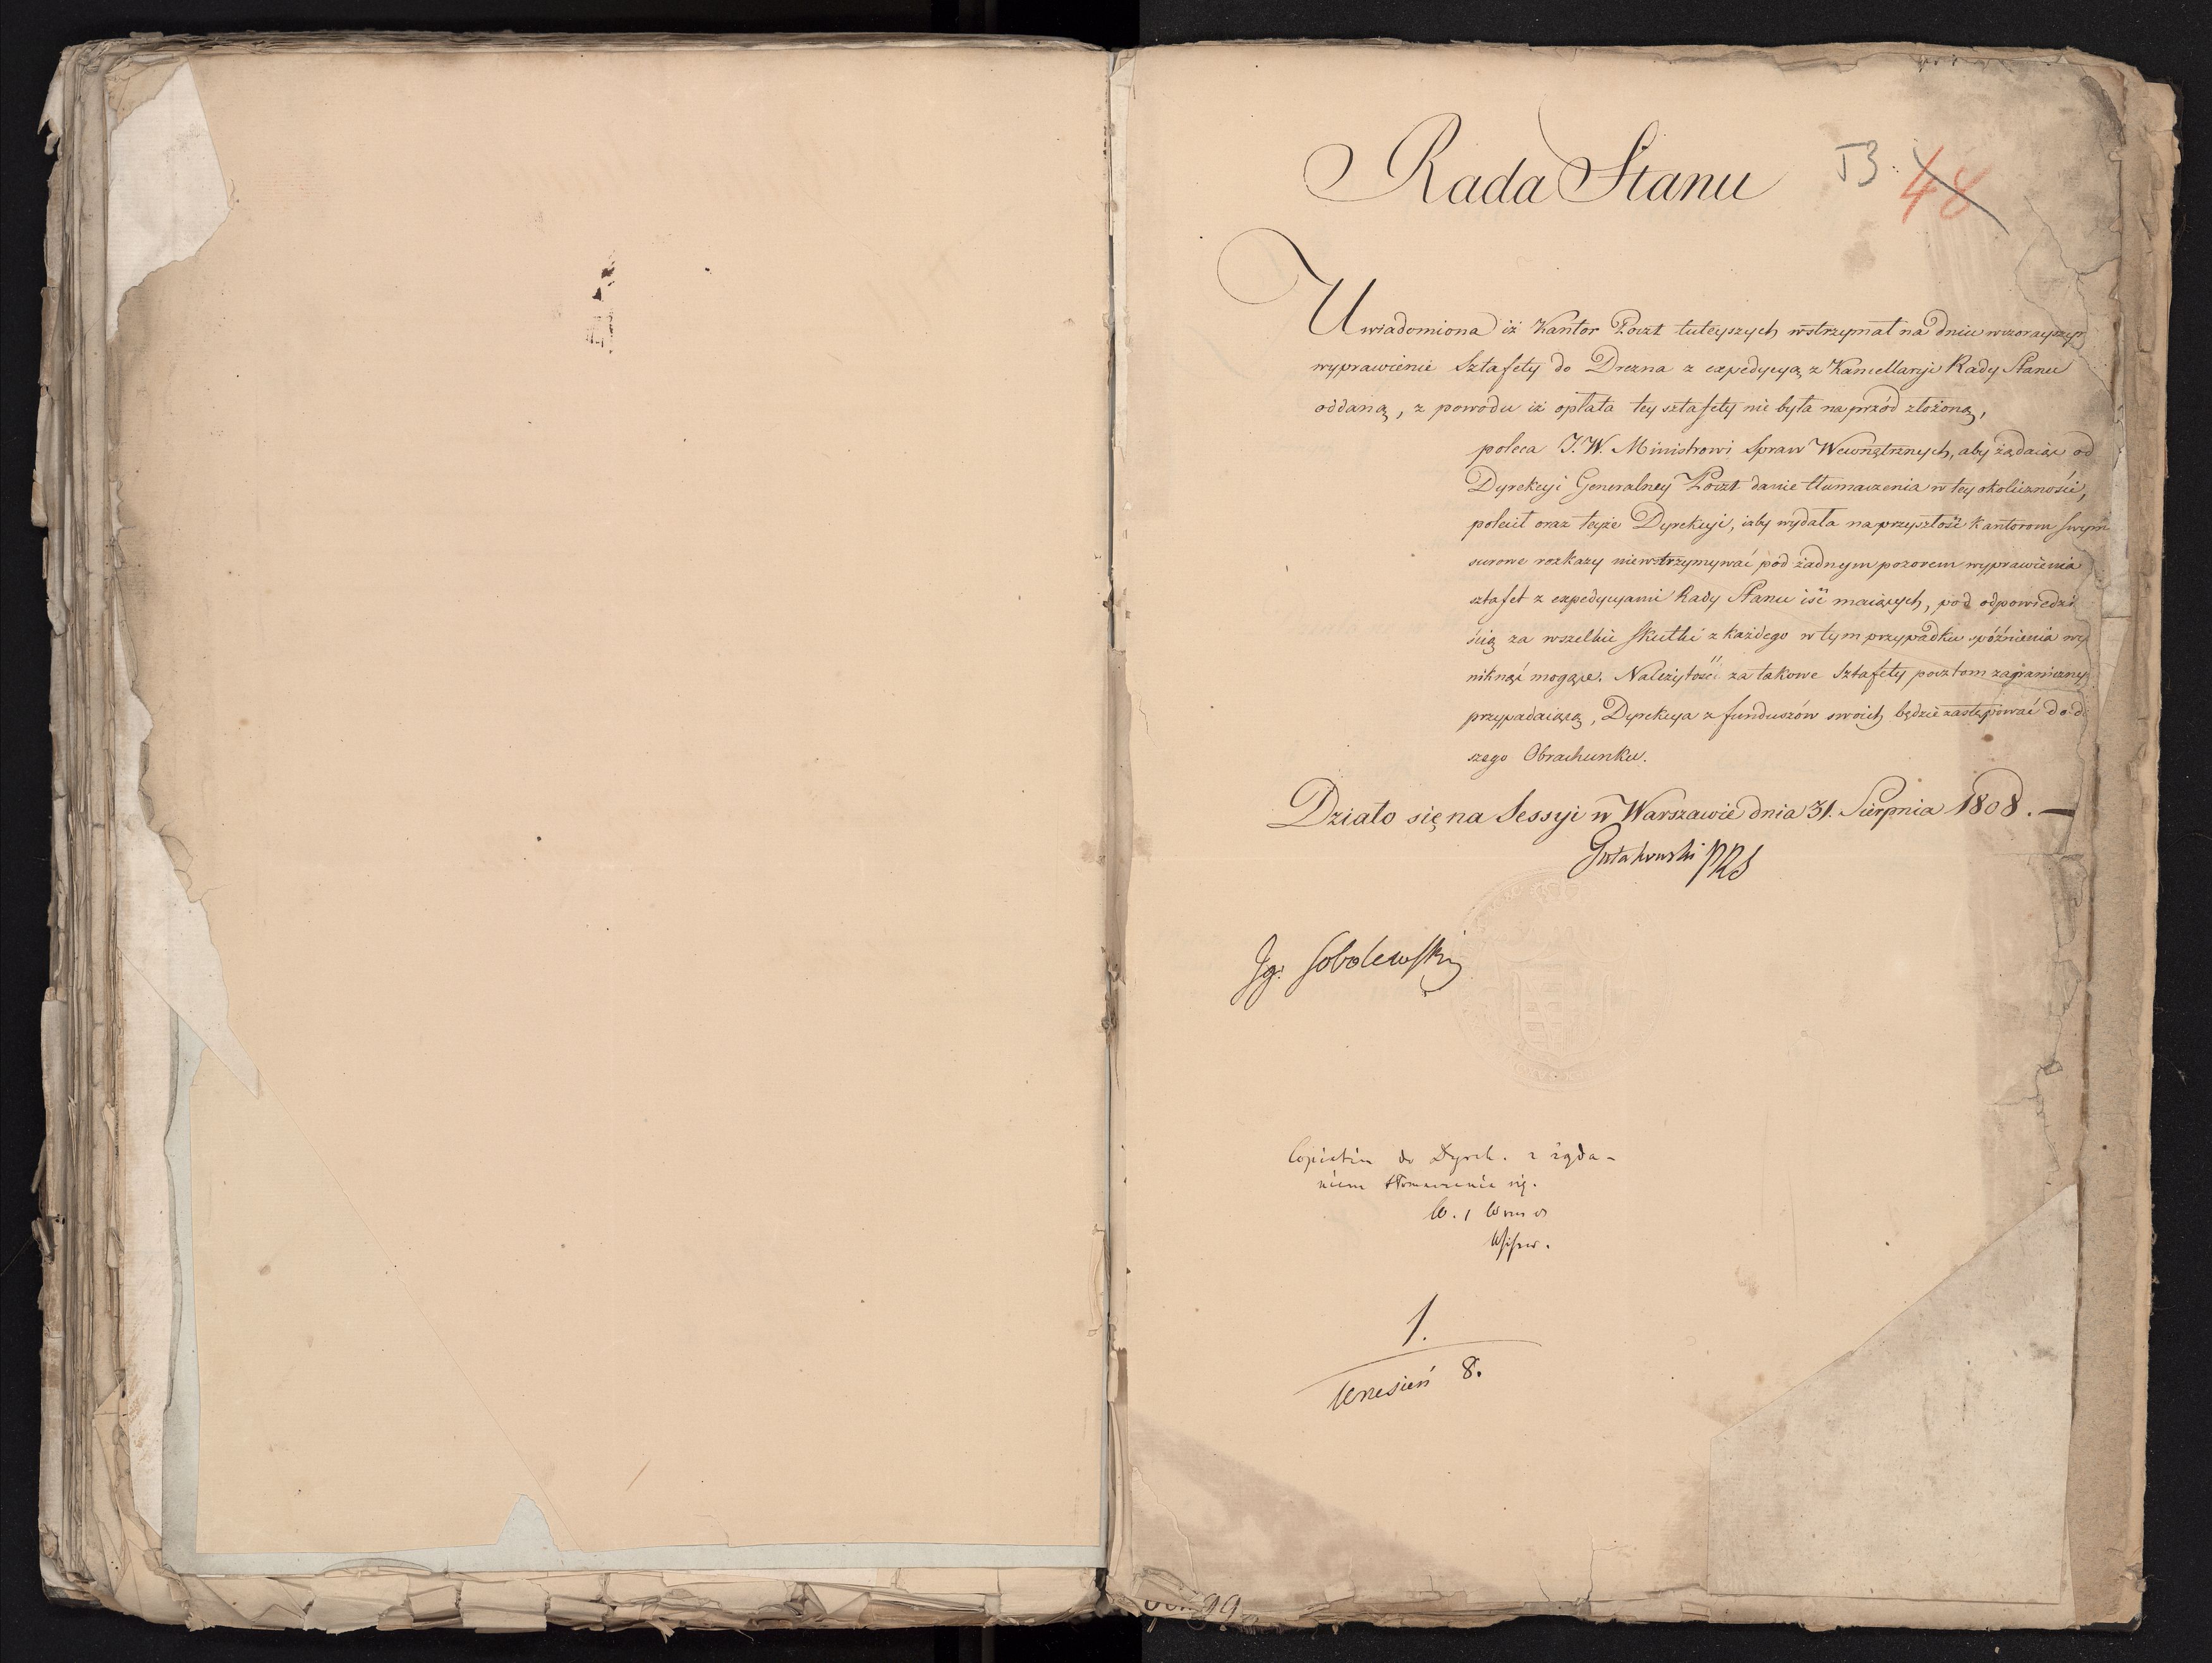 Rada Stanu
53. 48
Uwiadomiona iż Kantor Poczt tuteyszych wstrzymał na dniu wczorayszym
wyprawienie Sztafety do Drezna z expedycyą z Kancellaryi Rady Stanu
oddaną, z powodu iż opłata tey sztafety nie była naprzód złożoną,
poleca J.W. Ministrowi Spraw Wewnętrznych, aby żądaiąc od
Dyrekcyi Generalney Poczt danie tłumaczenia w tey okoliczności,
polecił oraz teyże Dyrekcyi, iżby wydała na przyszłość kantorom swym
surowe rozkazy niewstrzymywać pod żadnym pozorem wyprawienia
sztafet z expedycyami Rady Stanu iść maiących, pod odpowiedzi
ścią za wszelkie skutki z każdego w tym przypadku spóźnienia wy
niknąć mogące. Należytość za takowe Sztafety pocztom zagraniczny
przypadaiącą, Dyrekcya z funduszów swoich będzie zastępować do d
szego Obrachunku.
Działo się na Sessyi w Warszawie dnia 31. Sierpnia 1808. —
Gutakowski PRS
Ig: Sobolewski
do Dyrek. z żąda-
niem tłomaczenia się.
1.
Wrzesień 8.